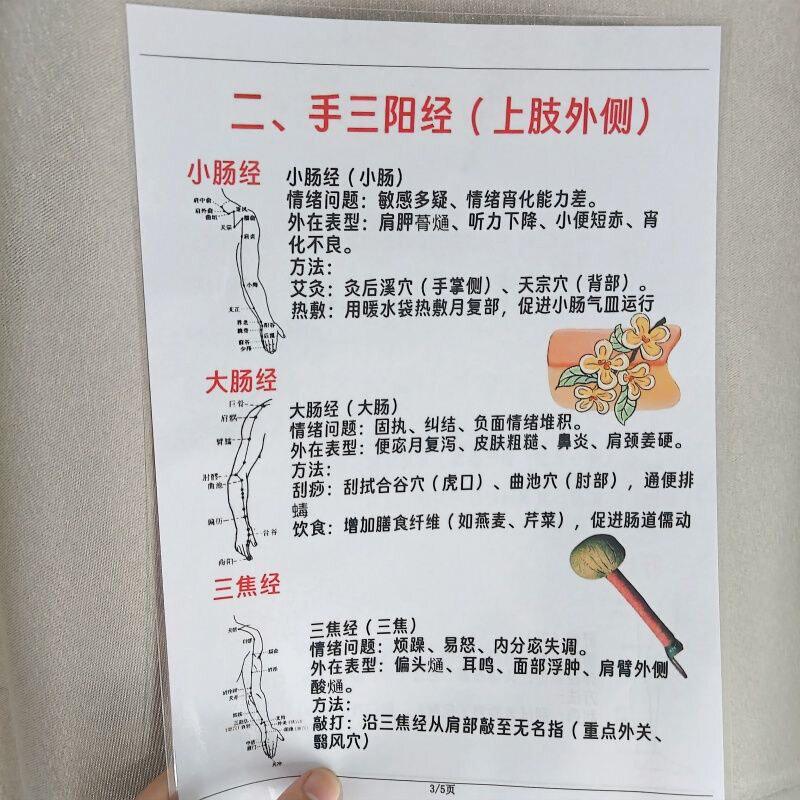 二、手三阳经（上肢外侧）
小肠经
小肠经（小肠）
情绪问题：敏感多疑、情绪宵化能力差。
外在表型：肩胛膏熥、听力下降、小便短赤、宵
化不良。
方法：
艾灸：灸后溪穴（手掌侧）、天宗穴（背部）。
热敷：用暖水袋热敷月复部，促进小肠气皿运行
大肠经
大肠经（大肠）
情绪问题：固执、纠结、负面情绪堆积。
外在表型：便宓月复泻、皮肤粗糙、鼻炎、肩颈姜硬。
方法：
刮痧：刮拭合谷穴（虎口）、曲池穴（肘部），通便排
蝳
饮食：增加膳食纤维（如燕麦、芹菜），促进肠道儒动
巨骨
肩髃
臂臑
曲池
偏历
合谷
商阳
三焦经
三焦经（三焦）
情绪问题：烦躁、易怒、内分宓失调。
外在表型：偏头熥、耳鸣、面部浮肿、肩臂外侧
酸熥。
方法：
敲打：沿三焦经从肩部敲至无名指（重点外关、
翳风穴）
3/5页